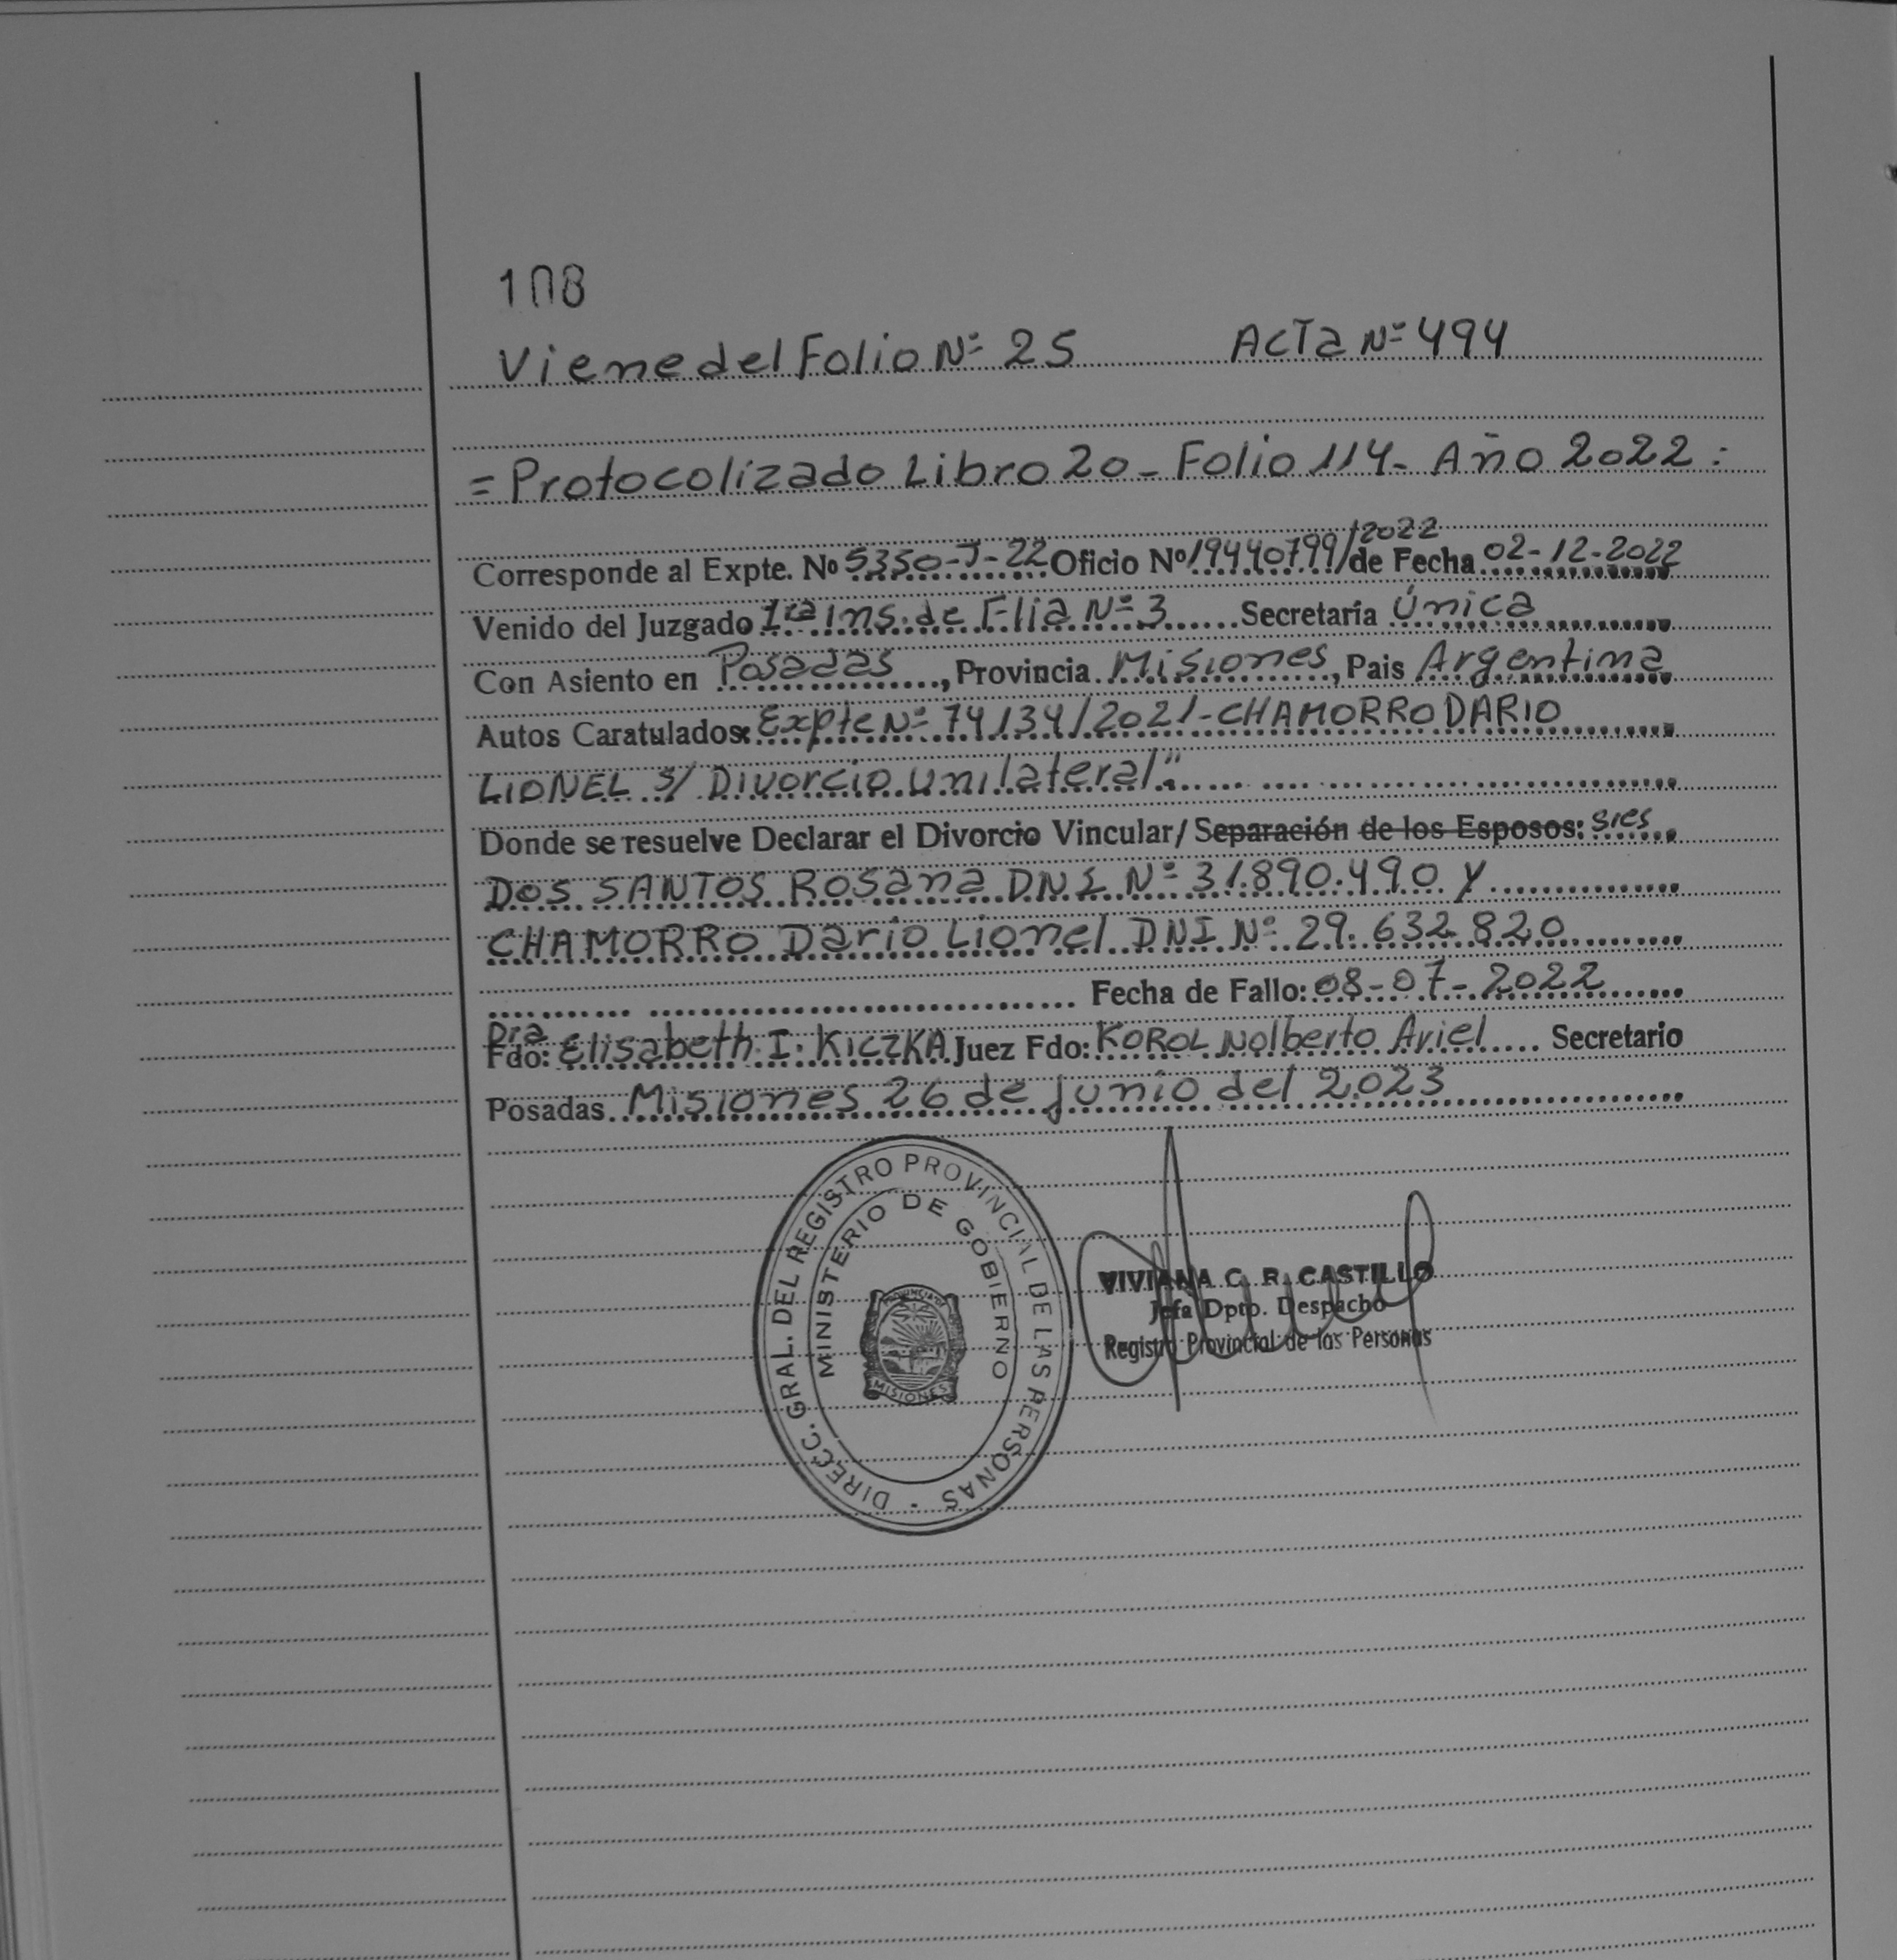 108
Viene del Folio Nº 25 Acta Nº 494
= Protocolizado Libro 20 - Folio 114 - Año 2022 :
Corresponde al Expte. Nº 5350-J-22 Oficio Nº 19440799/2022 de Fecha 02-12-2022
Venido del Juzgado 1ra ins. de Flia Nº 3 Secretaría Única
Con Asiento en Posadas, Provincia Misiones, Pais Argentina
Autos Caratulados: Expte Nº 74134/2021-CHAMORRO DARIO
LIONEL s/ Divorcio unilateral".
Donde se resuelve Declarar el Divorcio Vincular/ Separación de los Esposos: sres
DOS SANTOS Rosana DNI Nº 31.890.490 y
CHAMORRO Dario Lionel DNI Nº 29.632.820
Fecha de Fallo: 08-07-2022
Dra
Fdo: Elisabeth I. KICZKA Juez Fdo: KOROL Nolberto Ariel Secretario
Posadas Misiones 26 de junio del 2023
DIRECC. GRAL. DEL REGISTRO PROVINCIAL DE LAS PERSONAS -
MINISTERIO DE GOBIERNO
PROVINCIA DE
MISIONES
VIVIANA C. R. CASTILLO
Jefa Dpto. Despacho
Registro Provincial de las Personas